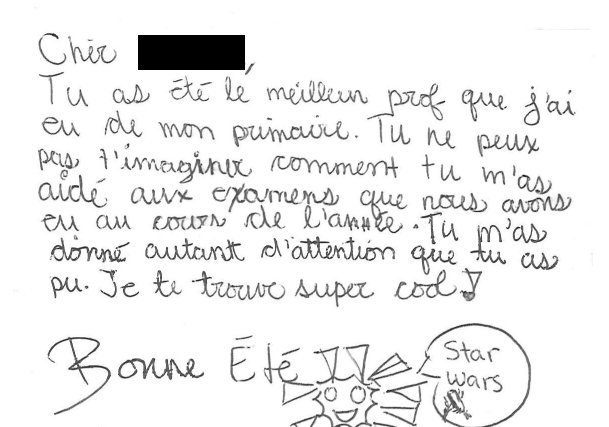 Cher ,
Tu as été le meilleur prof que j'ai
eu de mon primaire. Tu ne peux
pas t'imaginer comment tu m'as
aidé aux examens que nous avons
eu au cours de l'année. Tu m'as
donné autant d'attention que tu as
pu. Je te trouve super cool!
Bonne Été !!
Star
wars